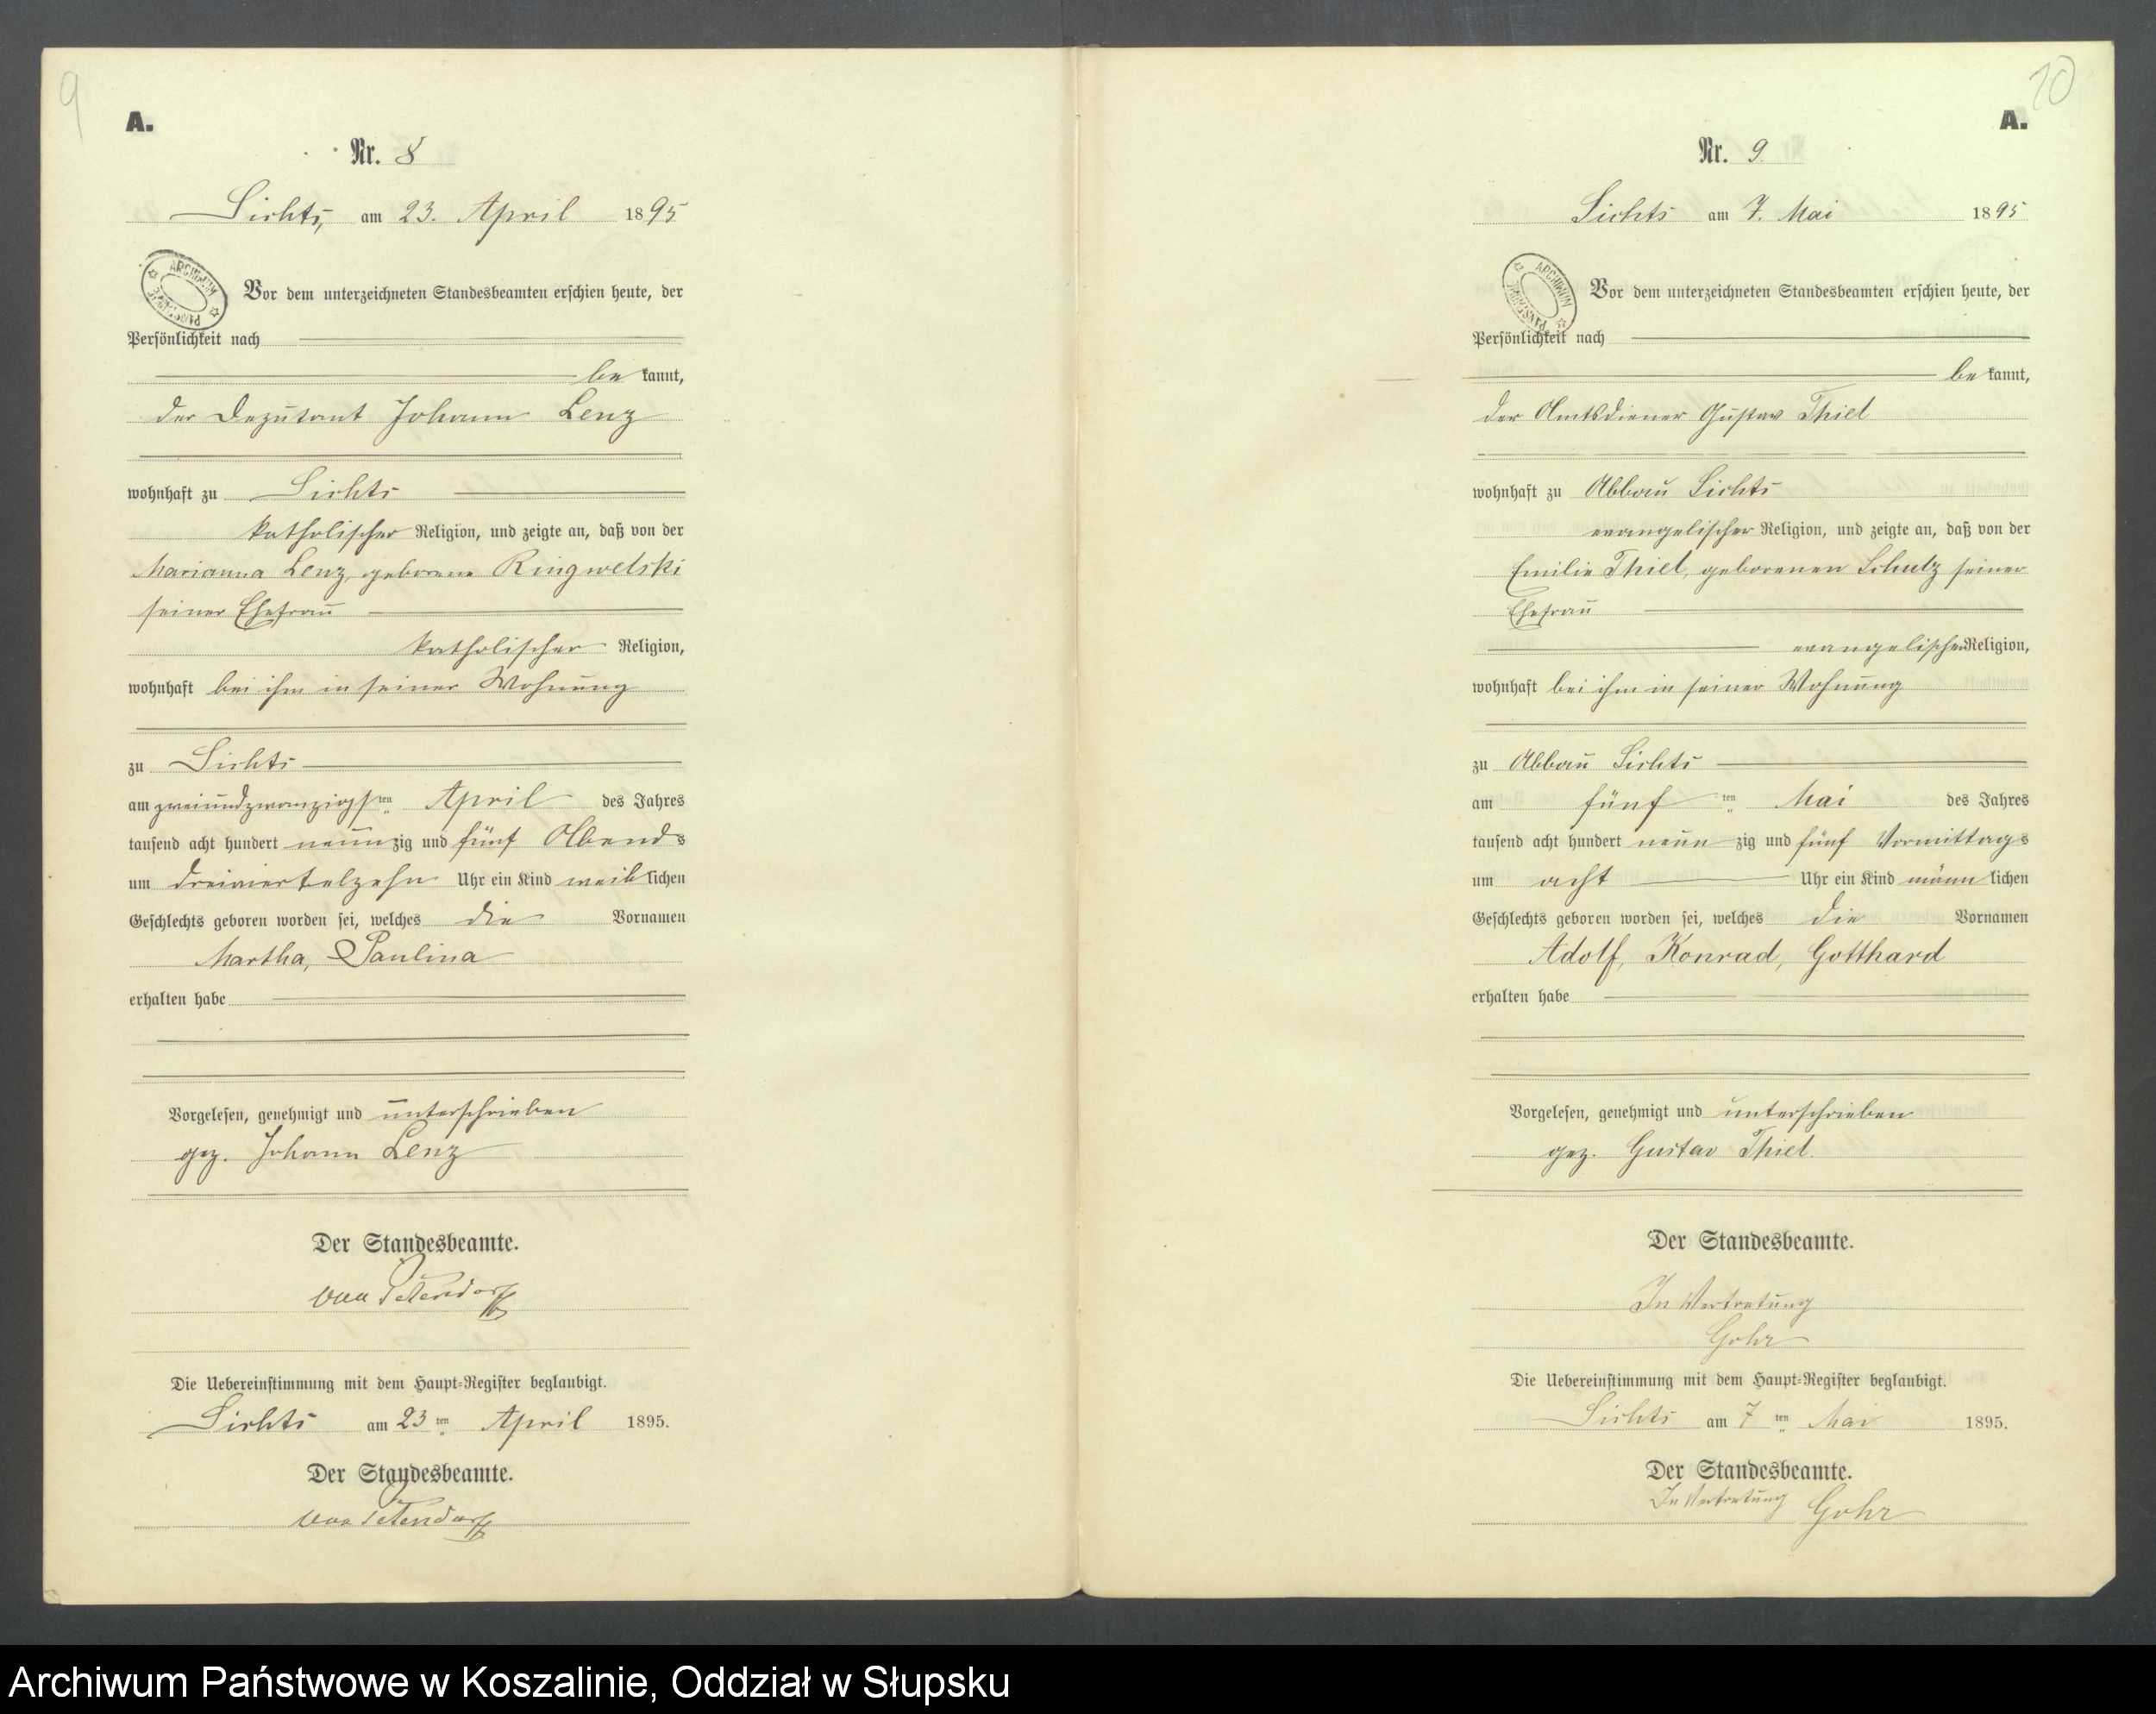 9
A.
Nr. 8
Lichts, am 23. April 1895
ARCHIWUM PAŃSTWOWE
Vor dem unterzeichneten Standesbeamten erschien heute, der
Persönlichkeit nach
bekannt,
der Deputant Johann Lenz
wohnhaft zu Lichts
katholischer Religion, und zeigte an, daß von der
Marianna Lenz, geborene Ringwelski
seiner Ehefrau
katholischer Religion,
wohnhaft bei ihm in seiner Wohnung
zu Lichts
am zweiundzwanzigsten April des Jahres
tausend acht hundert neunzig und fünf Abends
um dreiviertelzehn Uhr ein Kind weiblichen
Geschlechts geboren worden sei, welches die Vornamen
Martha, Paulina
erhalten habe
Vorgelesen, genehmigt und unterschrieben
gez. Johann Lenz
Der Standesbeamte.
von
Die Uebereinstimmung mit dem Haupt-Register beglaubigt.
Lichts am 23ten April 1895.
Der Standesbeamte.
von
10
A.
Nr. 9.
Lichts am 7. Mai 1895
ARCHIWUM PAŃSTWOWE
Vor dem unterzeichneten Standesbeamten erschien heute, der
Persönlichkeit nach
bekannt,
der Amtsdiener Gustav Thiel
wohnhaft zu Abbau Lichts
evangelischer Religion, und zeigte an, daß von der
Emilie Thiel, geborenen Schulz seiner
Ehefrau
evangelischer Religion,
wohnhaft bei ihm in seiner Wohnung
zu Abbau Lichts
am fünften Mai des Jahres
tausend acht hundert neunzig und fünf Vormittags
um acht Uhr ein Kind männlichen
Geschlechts geboren worden sei, welches die Vornamen
Adolf, Konrad, Gotthard
erhalten habe
Vorgelesen, genehmigt und unterschrieben
gez. Gustav Thiel.
Der Standesbeamte.
In Vertretung
Gohr
Die Uebereinstimmung mit dem Haupt-Register beglaubigt.
Lichts am 7ten Mai 1895.
Der Standesbeamte.
In Vertretung Gohr
Archiwum Państwowe w Koszalinie, Oddział w Słupsku